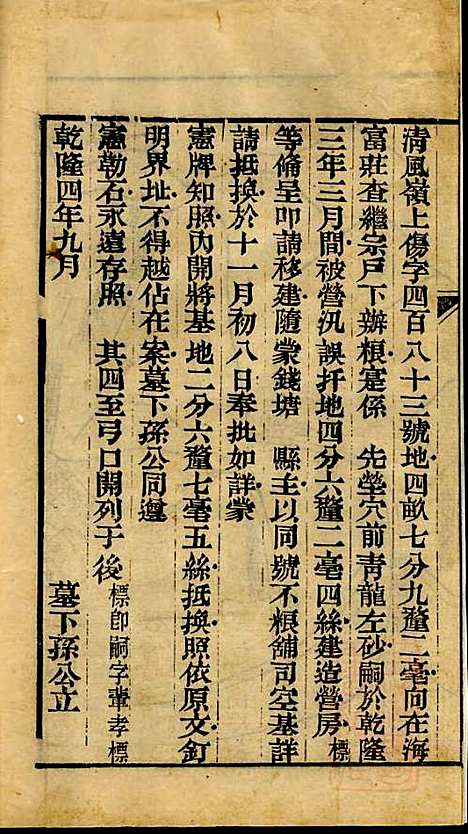 清風嶺上傷字四百八十三號地四畝七分九釐二毫向在海
富莊查繼宗戶下辦粮寔係　先塋穴前靑龍左砂嗣於乾隆
三年三月間被營汛誤扞地四分六釐二毫四絲建造營房標
等脩呈叩請移建隨蒙錢塘　縣主以同號不粮舖司空基詳
請抵換於十一月初八日奉批如詳蒙
憲牌知照內開將基地二分六釐七毫五絲抵換照依原文釘
明界址不得越佔在案墓下孫公同遵
憲勒石永遠存照　其四至弓口開列于後標卽嗣字輩孝標
乾隆四年九月　墓下孫公立